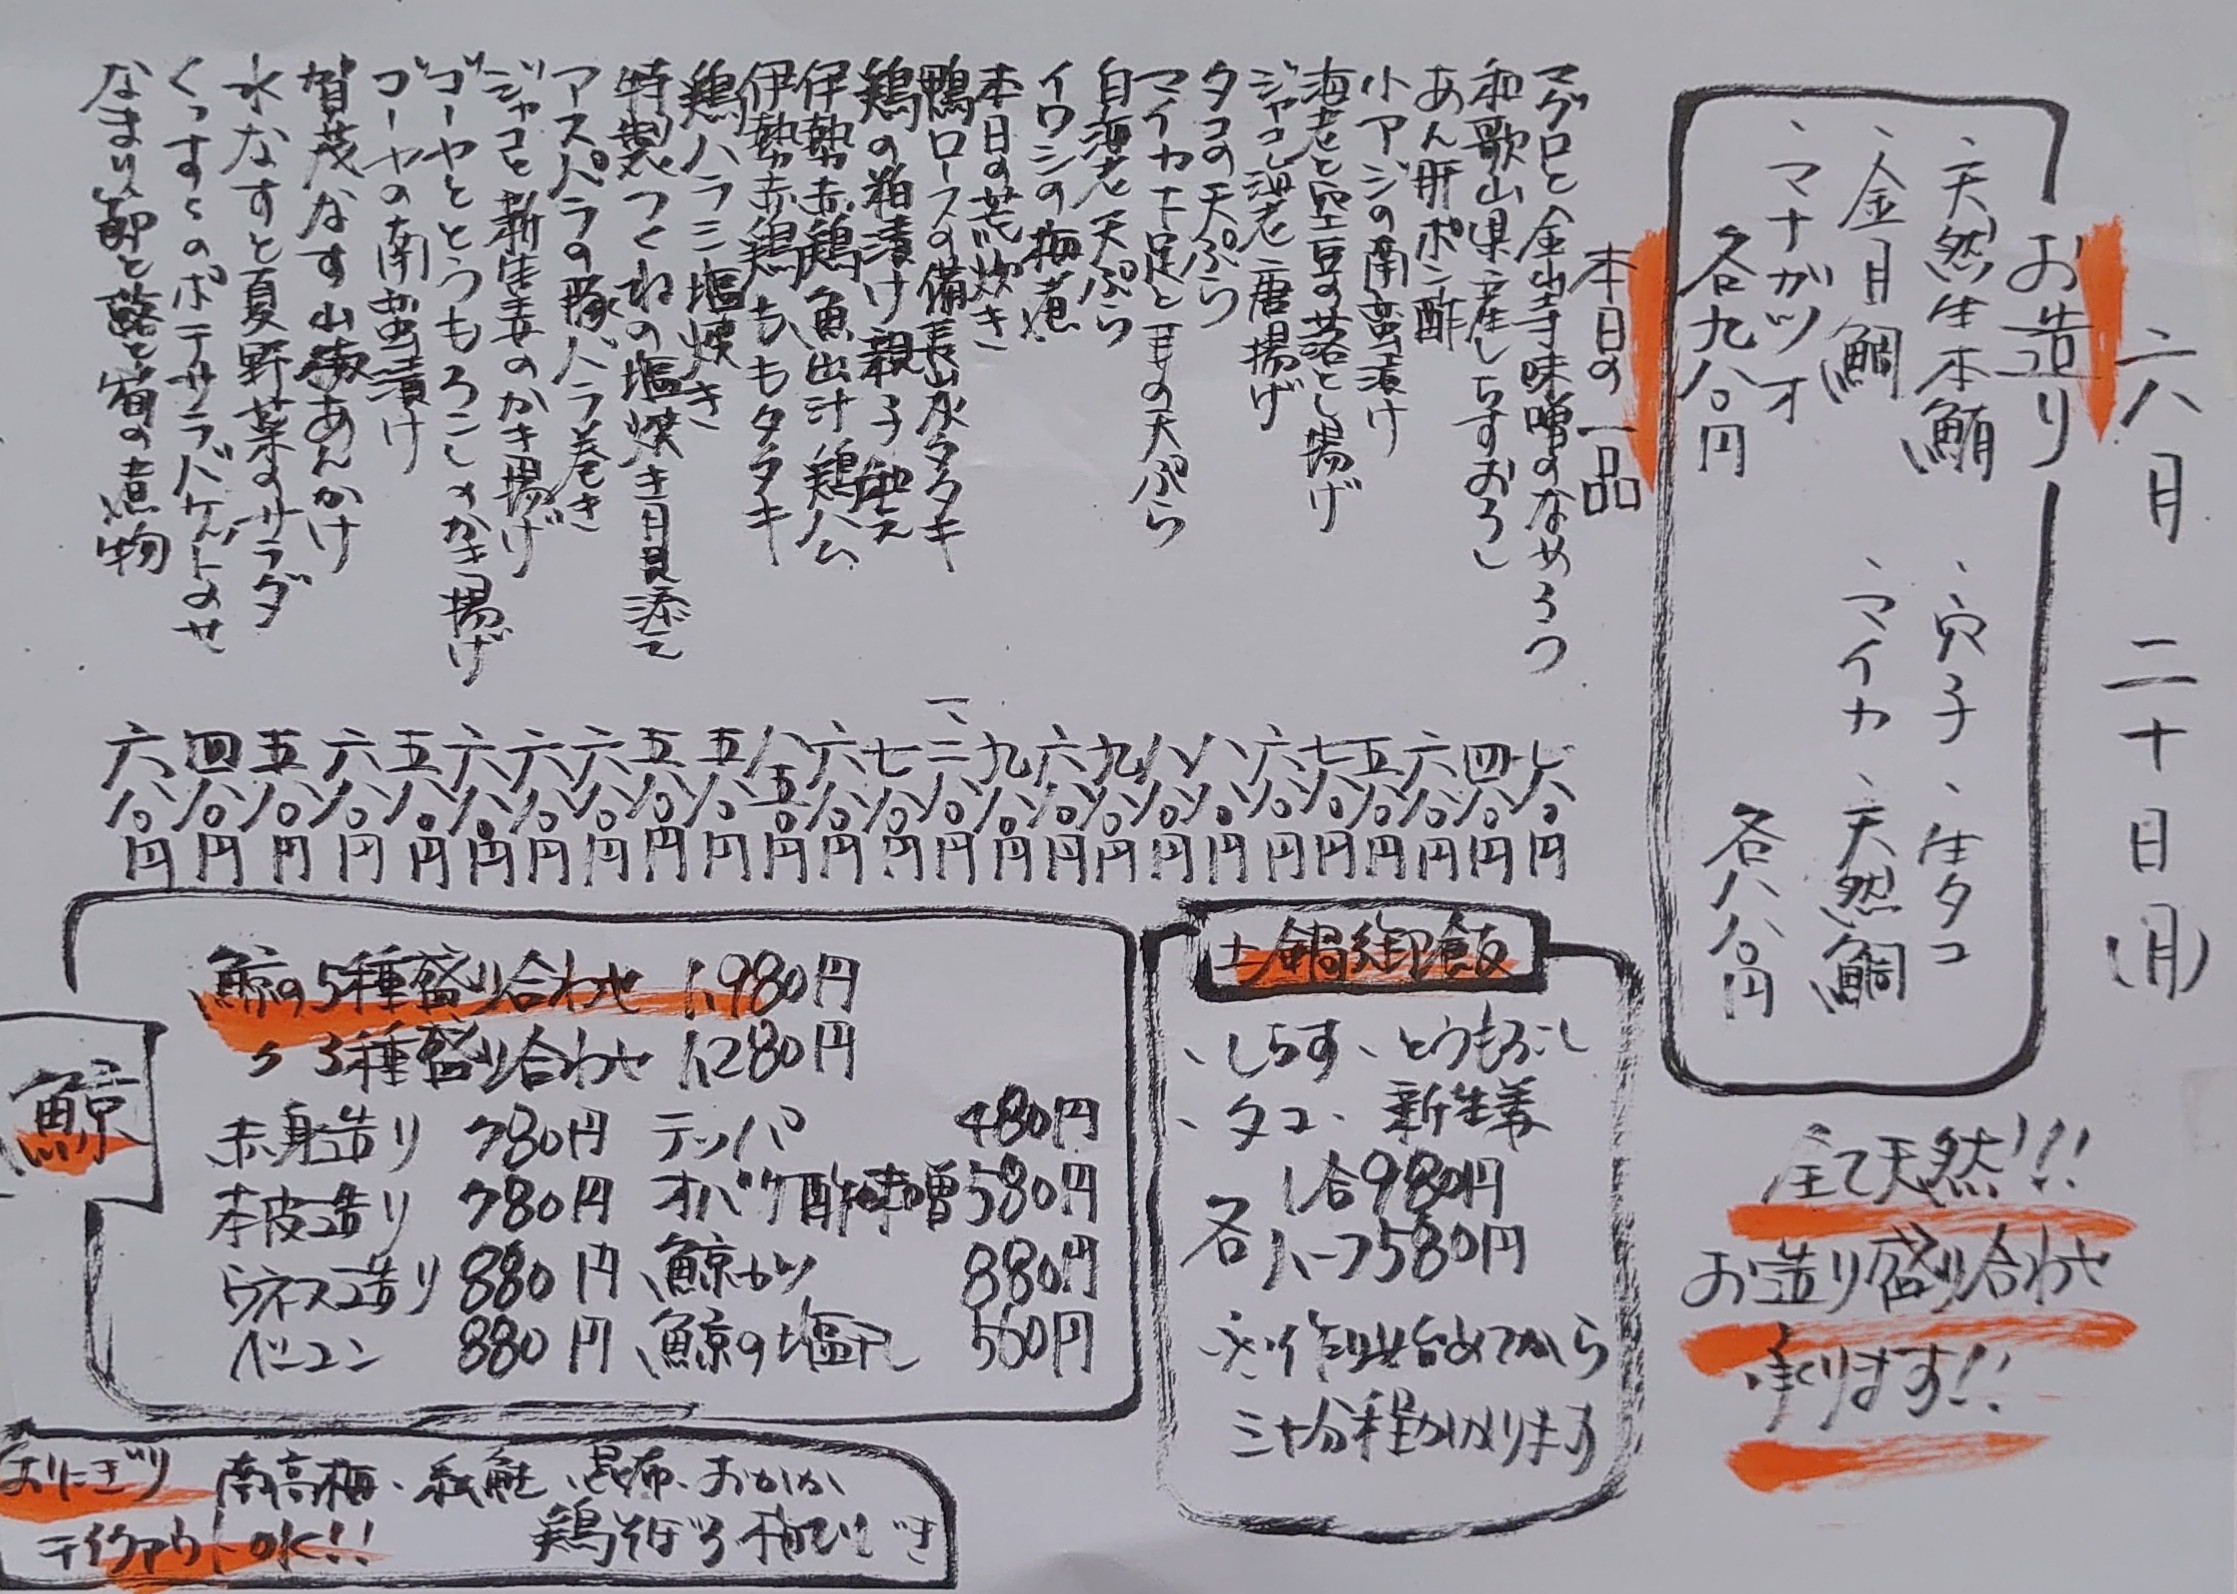 六月二十日(月)
お造り
、天然生本鮪
、金目鯛
、マナガツオ
各九八〇円
、穴子、生タコ
、マイカ、天然鯛
各八八〇円
全て天然!!!
お造り盛り合わせ
承ります!!
本日の一品
マグロと金山寺味噌のなめろう 七八〇円
和歌山県産しらすおろし 四八〇円
あん肝ポン酢 六八〇円
小アジの南蛮漬け 五八〇円
海老と空豆の落とし揚げ 七八〇円
ジャコと海老唐揚げ 六八〇円
タコの天ぷら 八八〇円
マイカ下足との天ぷら 八八〇円
白海老天ぷら 九八〇円
イワシの梅煮 六八〇円
本日の荒炊き 九八〇円
鴨ロースの備長タタキ 一、二八〇円
鶏の粕漬け親子和え 七八〇円
伊勢赤鶏魚出汁鶏ハム 六八〇円
伊勢赤鶏ももタタキ 八五〇円
鶏ハラミ塩焼き 五八〇円
特製つくねの塩焼き月見添えて 五八〇円
アスパラの豚バラ巻き 六八〇円
ジャコと新生姜のかき揚げ 六八〇円
ゴーヤととうもろこしのかき揚げ 六八〇円
ゴーヤの南蛮漬け 五八〇円
賀茂なす山椒あんかけ 六八〇円
水なすと夏野菜のサラダ 五八〇円
のポテサラバケットのせ 四八〇円
なまり節と蕗と筍の煮物 六八〇円
土鍋御飯
、しらす、とうもろこし
、タコ、新生姜
各 1合980円
ハーフ580円
※作り始めてから
三十分程かかります
鯨
鯨の5種盛り合わせ 1,980円
〃 3種盛り合わせ 1,280円
赤身造り 780円 テッパ 480円
本皮造り 780円 オバケ酢味噌 580円
ウネス造り 880円 鯨カツ 880円
ベーコン 880円 鯨の塩 560円
おにぎり 南高梅、紅鮭、昆布、おかか
テイクアウトOK!! 鶏そぼろ